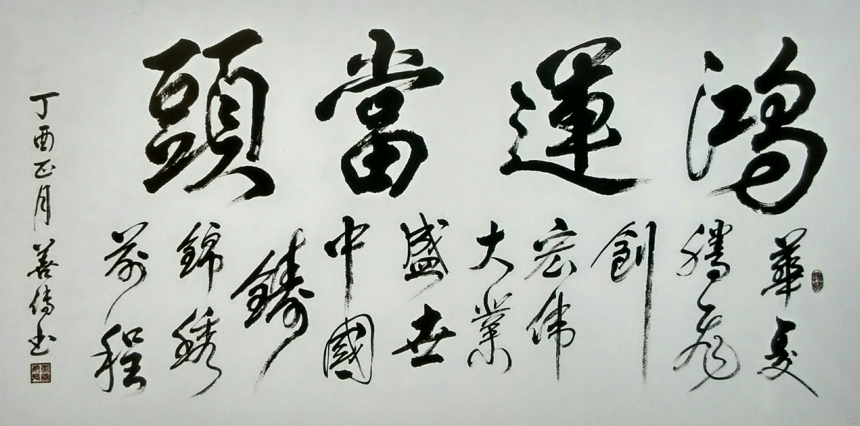 鴻運當頭
華夏
騰飛
創
宏伟
大業
盛世
中國
鑄
錦綉
前程
丁酉正月
善倚书